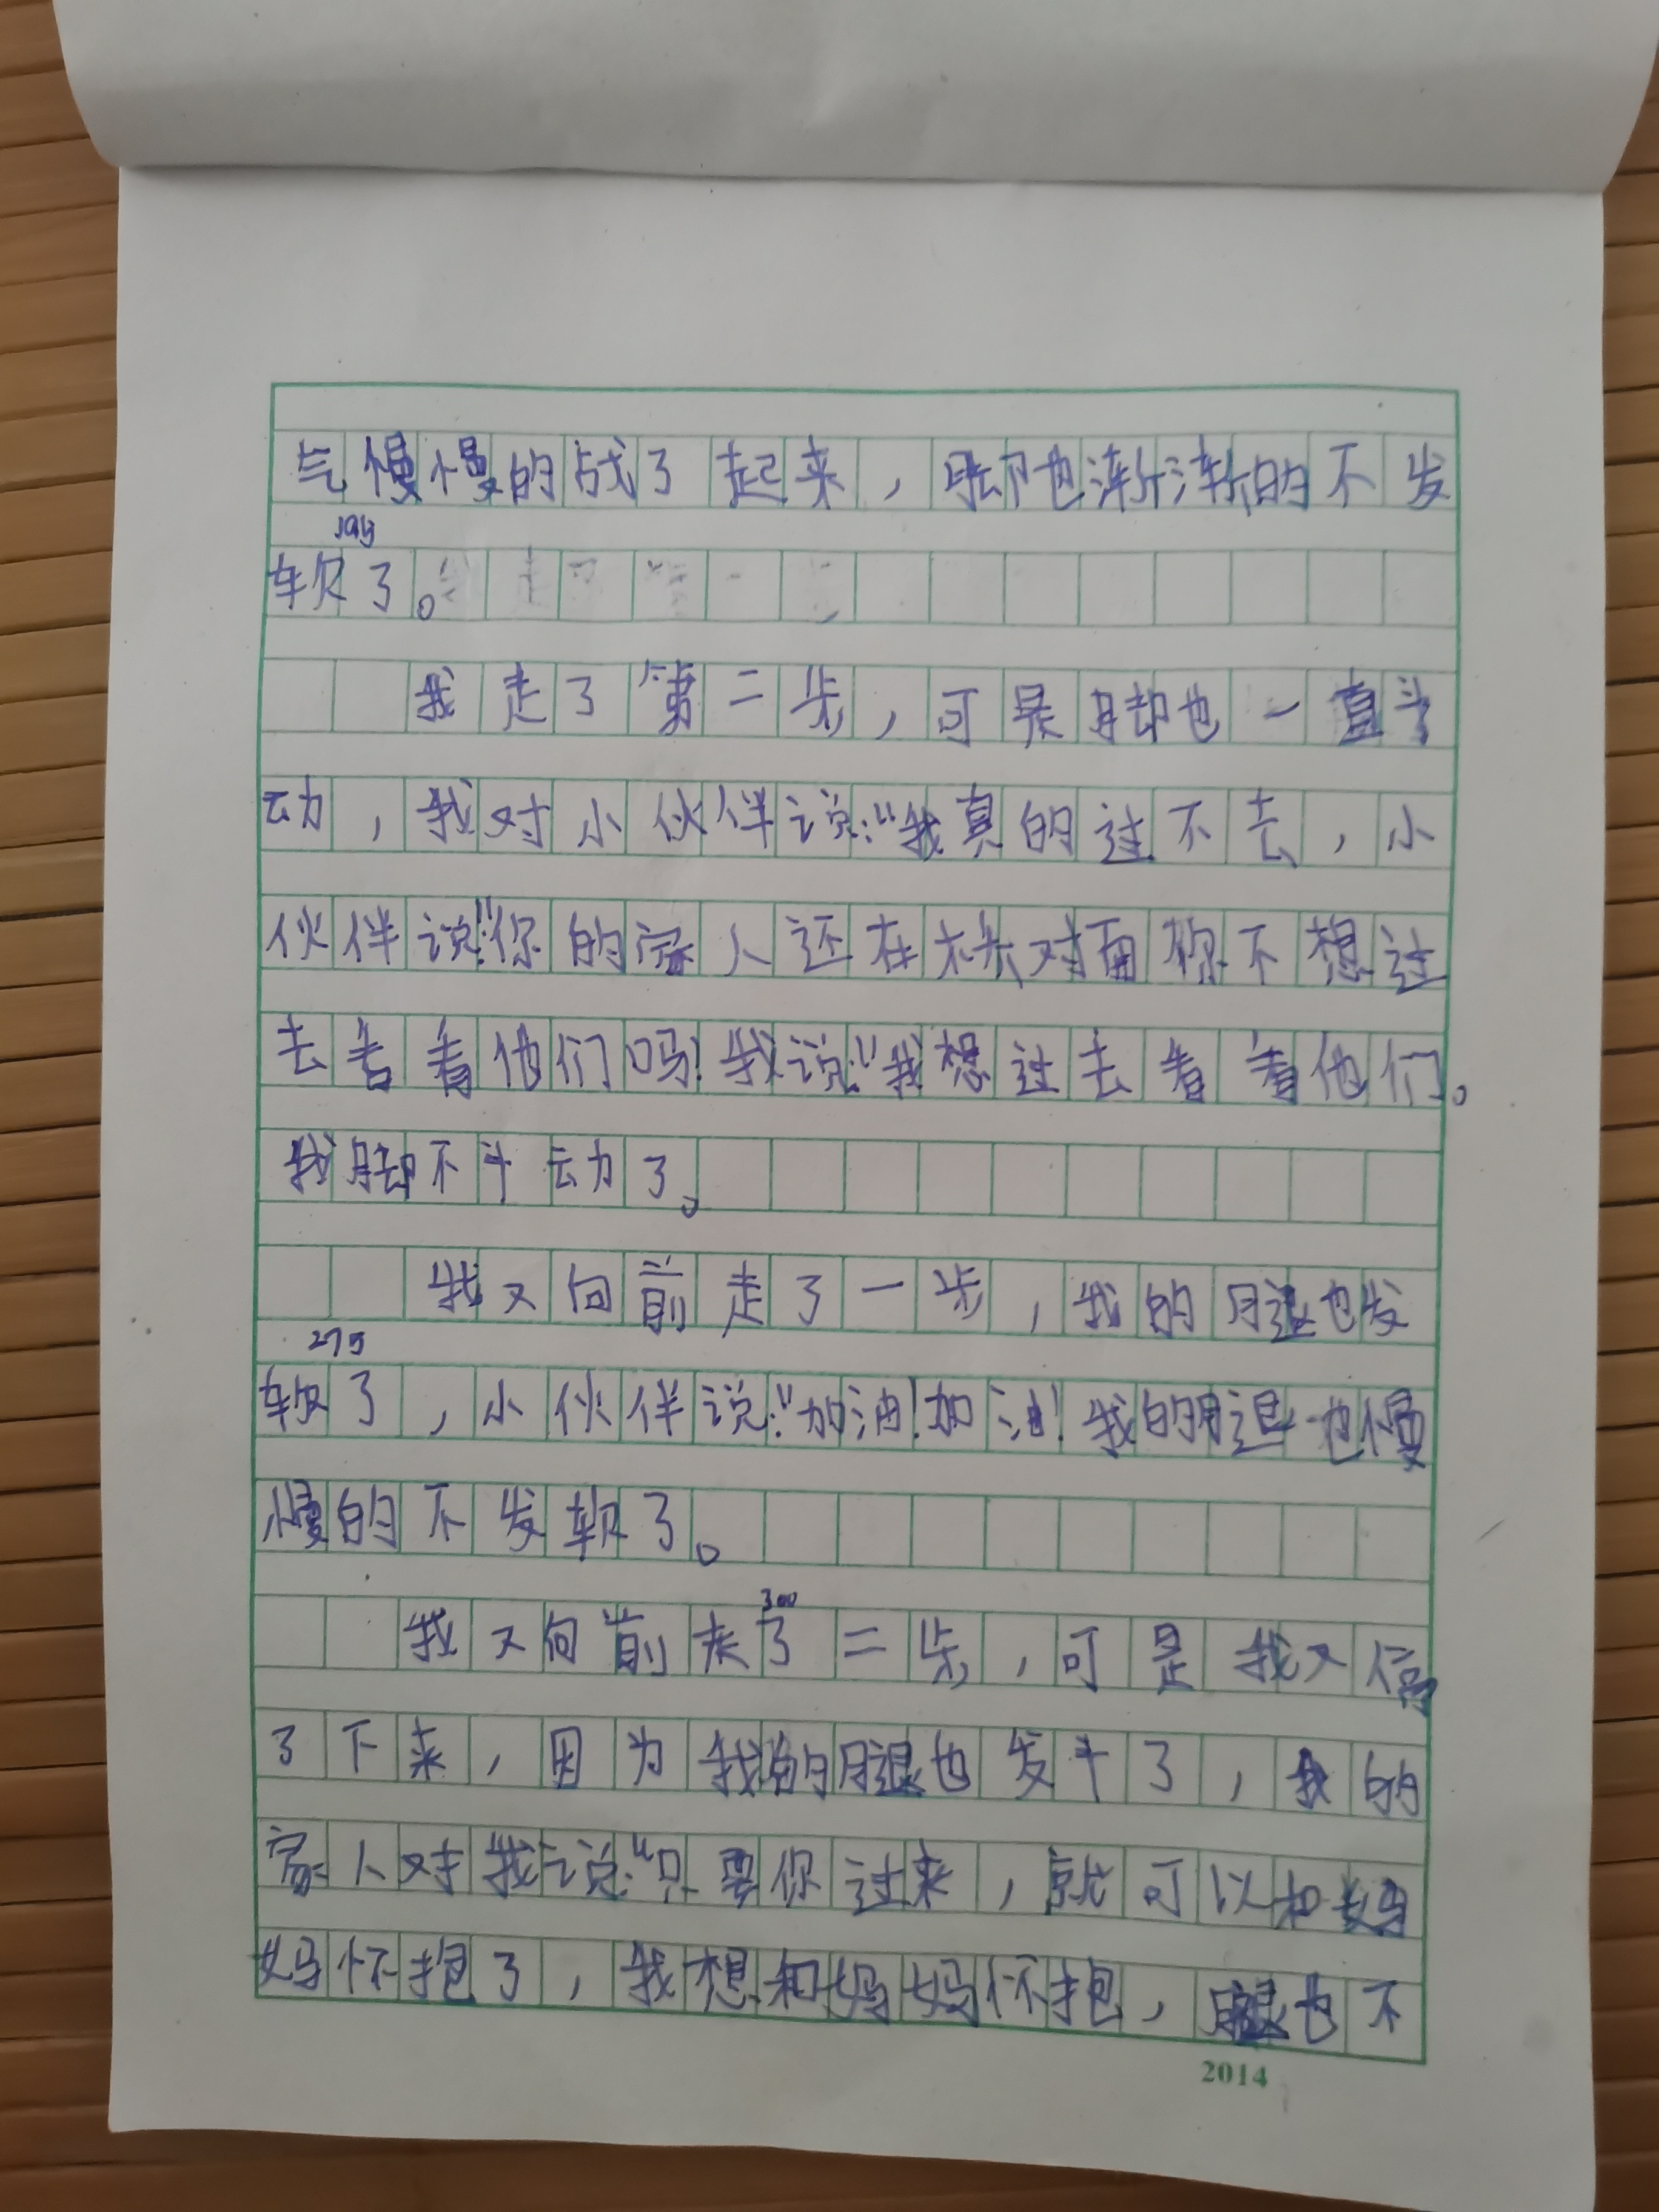 气慢慢的战了起来，脚也渐渐的不发
软了。
我走了第二步，可是脚也一直斗
动，我对小伙伴说：“我真的过不去，小
伙伴说：“你的家人还在桥对面你不想过
去看看他们吗！我说：“我想过去看看他们。
我脚不斗动了。
我又向前走了一步，我的腿也发
275
软了，小伙伴说：“加油！加油！我的腿也慢
慢的不发软了。
300
我又向前走了二步，可是我又停
了下来，因为我的腿也发斗了，我的
家人对我说：“只要你过来，就可以和妈
妈怀抱了，我想和妈妈怀抱，腿也不
2014